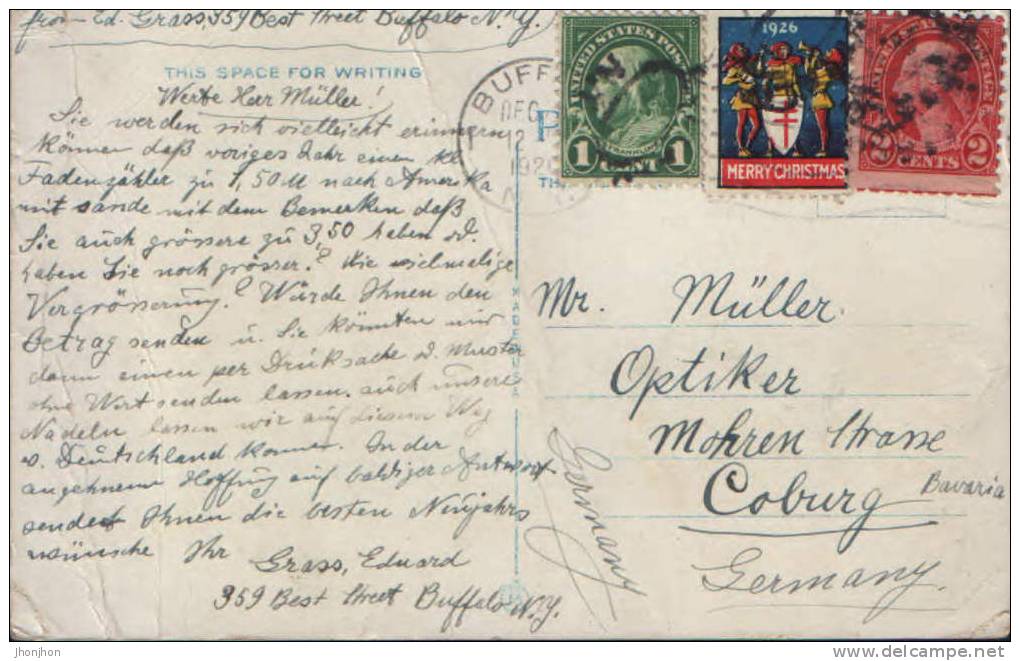 from Ed. Grass, 359 Best Street Buffalo N.Y.
THIS SPACE FOR WRITING
Werte Herr Müller!
Sie werden sich vielleicht erinnern
können daß voriges Jahr einen kl.
Fadenzähler zu 1,50 M nach Amerika
mit sande mit dem Bemerken daß
Sie auch grössere zu 3,50 haben od.
haben Sie noch grösser? Wie vielmalige
Vergrösserung? Würde Ihnen den
Betrag senden u. Sie könnten mir
dann einen per Drucksache od. Muster
ohne Wert senden lassen. auch unsere
Nadeln lassen wir auf diesem Weg
v. Deutschland kommen. In der
angenehmen Hoffung auf baldiger Antwort
sendet Ihnen die besten Neujahrs
wünsche Ihr
Grass, Eduard
359 Best Street Buffalo N.Y.
MADE IN USA
BUFF
DEC
192
P
TH
UNITED STATES POST
FRANKLIN
1 CENT 1
1926
MERRY CHRISTMAS
2 CENTS 2
Mr. Müller.
Optiker
Mohren Strasse
Coburg Bavaria
Germany.
Germany
jhonjhon
delcampe.net